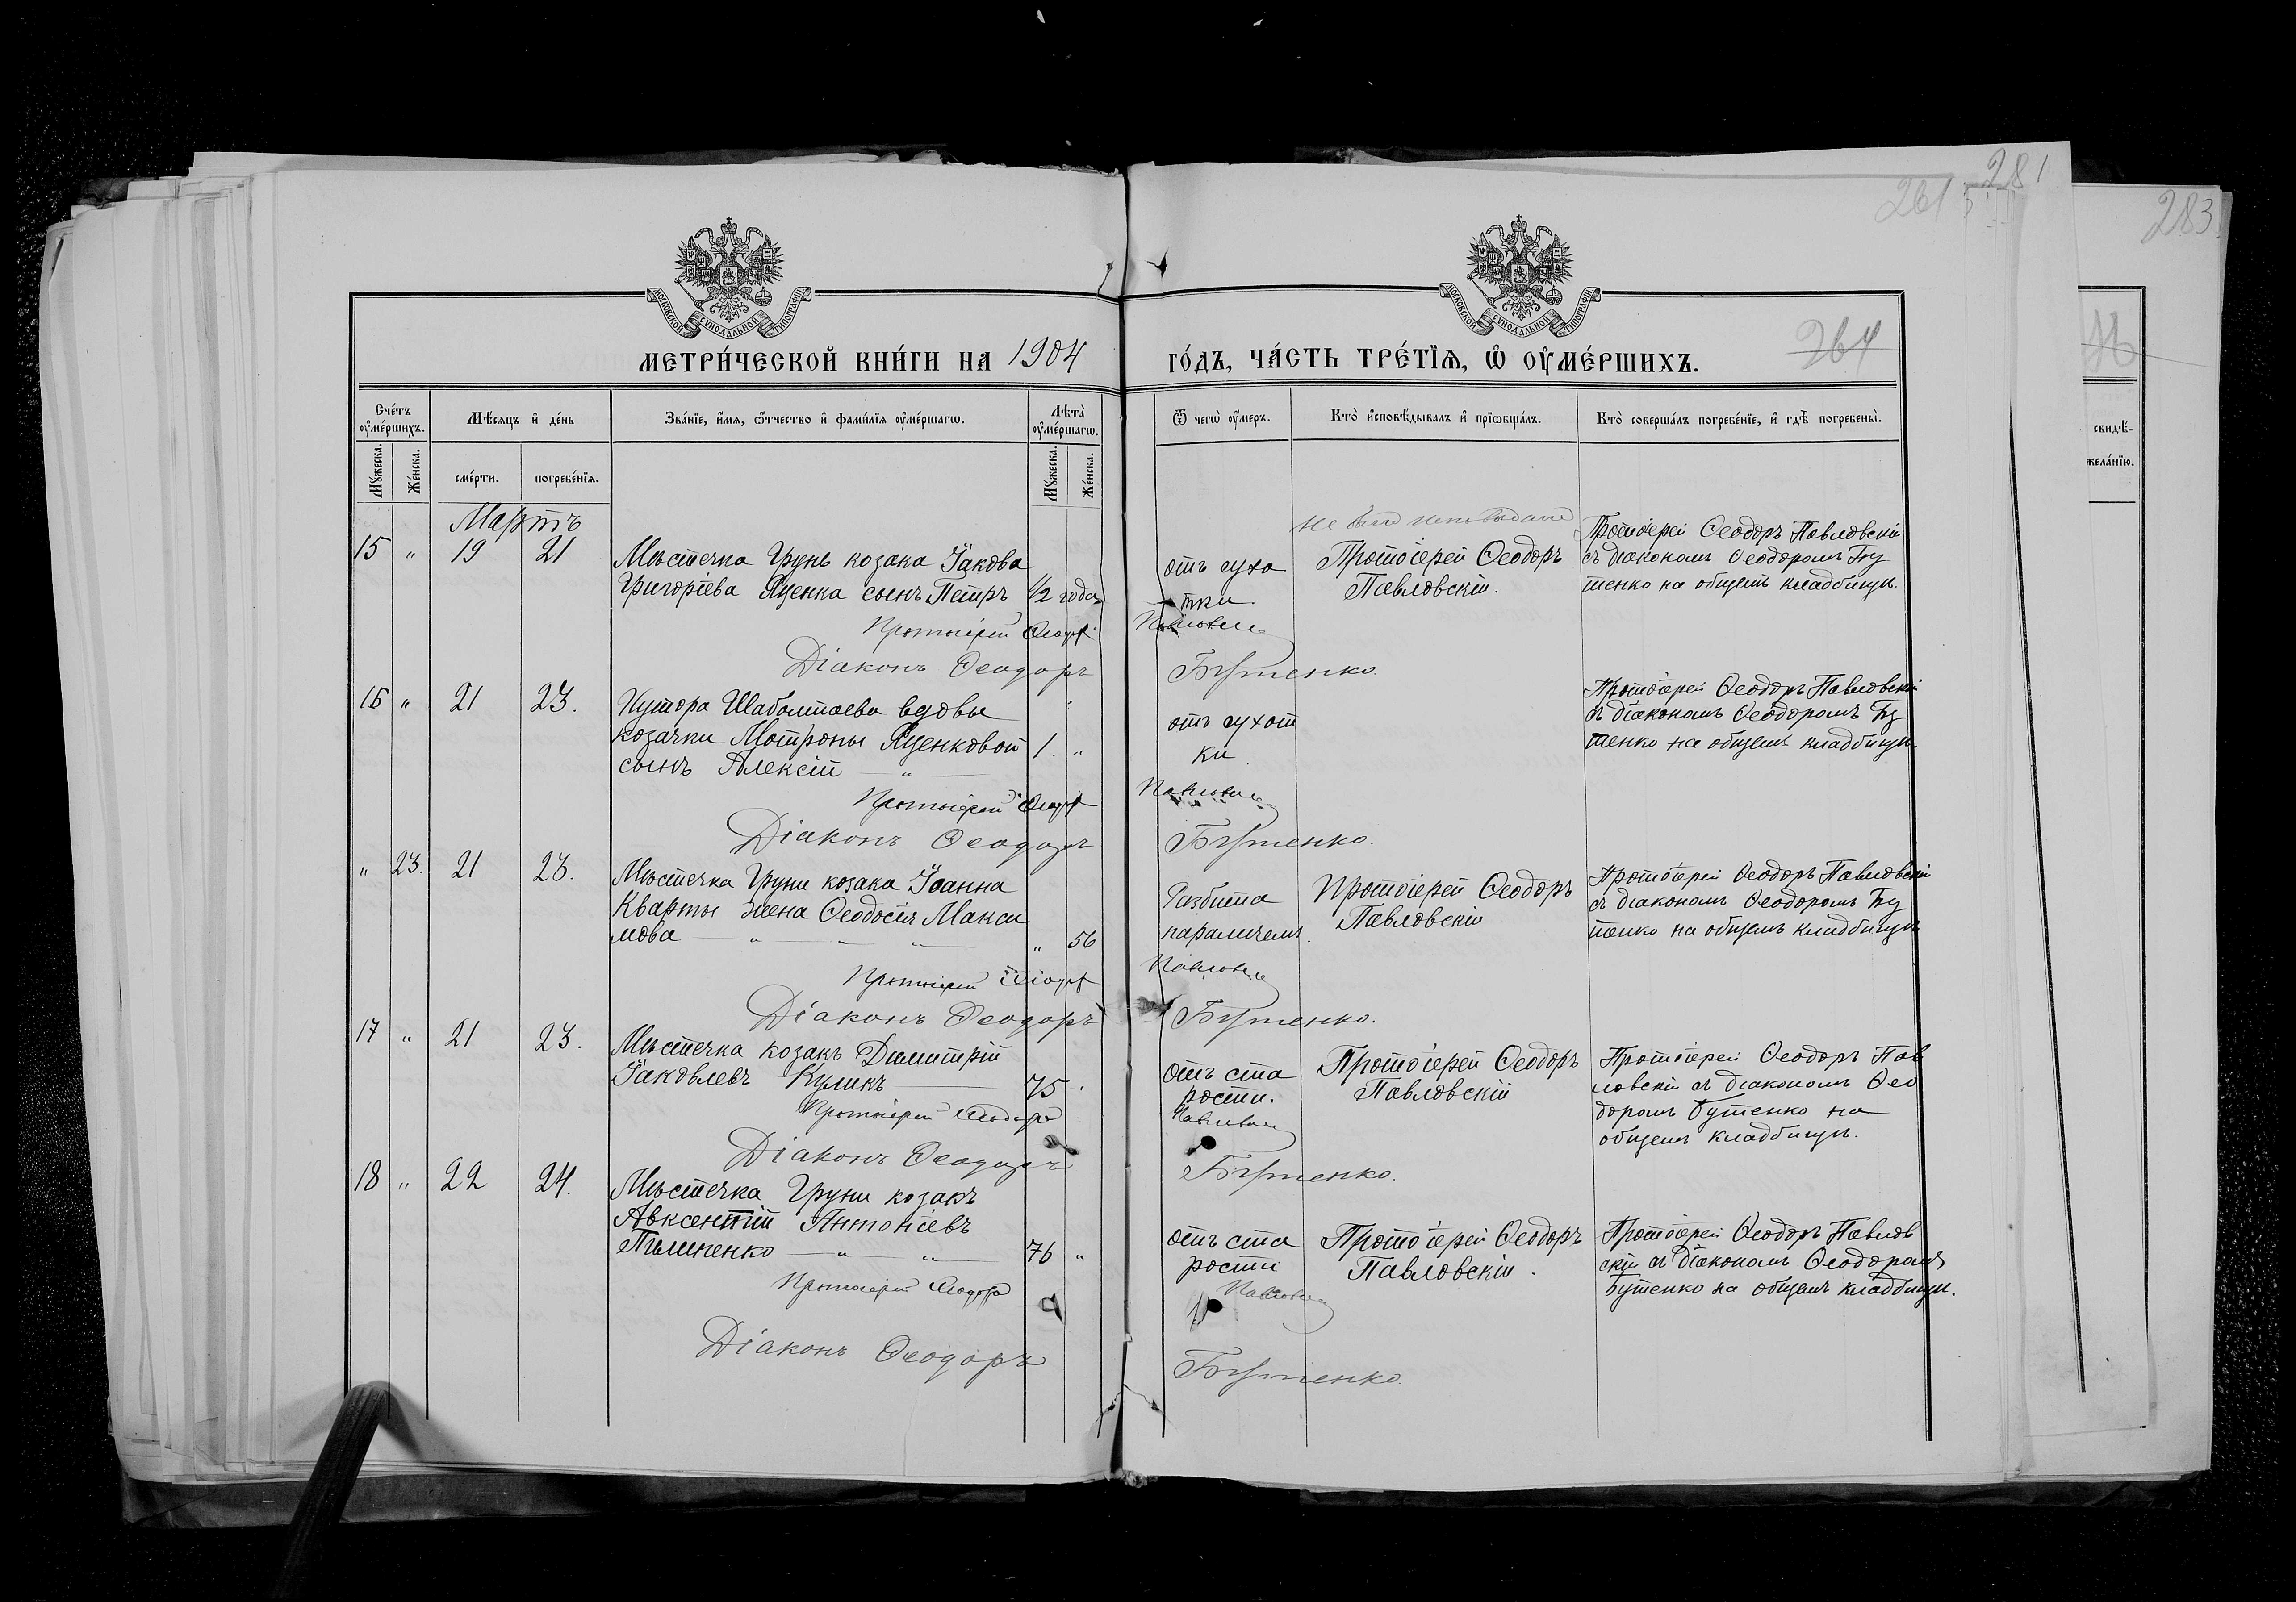 281
261
283
МОСКОВСКОЙ СѴНОДАЛЬНОЙ ТИПОГРАФІИ
МОСКОВСКОЙ СѴНОДАЛЬНОЙ ТИПОГРАФІИ
264
МЕТРИ́ЧЕСКОЙ КНИ́ГИ НА 1904
ГО́ДЪ, ЧА́СТЬ ТРЕ́ТЇѦ, Ѡ҆ ОУ҆МЕ́РШИХЪ.
Сче́тъ оу҆ме́ршихъ.
Мѣ́сяцъ и҆ де́нь
Зва́нїе, и҆́мѧ, ѻ҆́тчество и҆ фами́лїѧ оу҆ме́ршагѡ.
Лѣ́та оу҆ме́ршагѡ.
Ѿ чегѡ̀ оу҆́меръ.
Кто̀ и҆сповѣ́дывалъ и҆ прїѡбща́лъ.
Кто̀ соверша́лъ погребе́нїе, и҆ гдѣ̀ погребены̀.
свидѣ-
жела́нїю.
Мꙋ́жеска.
Же́нска.
сме́рти.
погребе́нїѧ.
Мꙋ́жеска.
Же́нска.
Мартъ
15 „ 19 21
Мѣстечка Грунь козака Іакова
Григоріева Яценка сынъ Петръ 1/2 года
отъ сухо
тки
Протоіерей Ѳеодоръ
Павловскій.
Протоіерей Ѳеодоръ Павловскій
съ діакономъ Ѳеодоромъ Бу
тенко на общемъ кладбищѣ.
Протоіерей Ѳеодоръ Павловскій
Діаконъ Ѳеодоръ Бутенко.
16 „ 21 23.
Хутора Шаболтаева вдовы
козачки Мотроны Яценковой 1. „
сынъ Алексій — „ —
отъ сухот
ки
Протоіерей Ѳеодоръ Павловскій
съ діакономъ Ѳеодоромъ Бу
тенко на общемъ кладбищѣ
Протоіерей Ѳеодоръ Павловскій
Діаконъ Ѳеодоръ Бутенко.
„ 23. 21 23.
Мѣстечка Груни козака Іоанна
Кварты жена Ѳеодосія Макси
мова — „ — „ — „ — „ 56
Разбита
параличемъ.
Протоіерей Ѳеодоръ
Павловскій
Протоіерей Ѳеодоръ Павловскій
съ діакономъ Ѳеодоромъ Бу
тенко на общемъ кладбищѣ
Протоіерей Ѳеодоръ Павловскій
Діаконъ Ѳеодоръ Бутенко.
17 „ 21 23.
Мѣстечка козакъ Димитрій
Іаковлевъ Куликъ — 75 „
отъ ста
рости.
Протоіерей Ѳеодоръ
Павловскій
Протоіерей Ѳеодоръ Пав
ловскій съ діакономъ Ѳео
доромъ Бутенко на
общемъ кладбищѣ.
Протоіерей Ѳеодоръ Павловскій
Діаконъ Ѳеодоръ Бутенко.
18 „ 22 24.
Мѣстечка Груни козакъ
Авксентій Антоніевъ
— „ — „ — 76 „
отъ ста
рости
Протоіерей Ѳеодоръ
Павловскій.
Протоіерей Ѳеодоръ Павлов
скій съ діакономъ Ѳеодоромъ
Бутенко на общемъ кладбищѣ.
Протоіерей Ѳеодоръ Павловскій
Діаконъ Ѳеодоръ Бутенко.